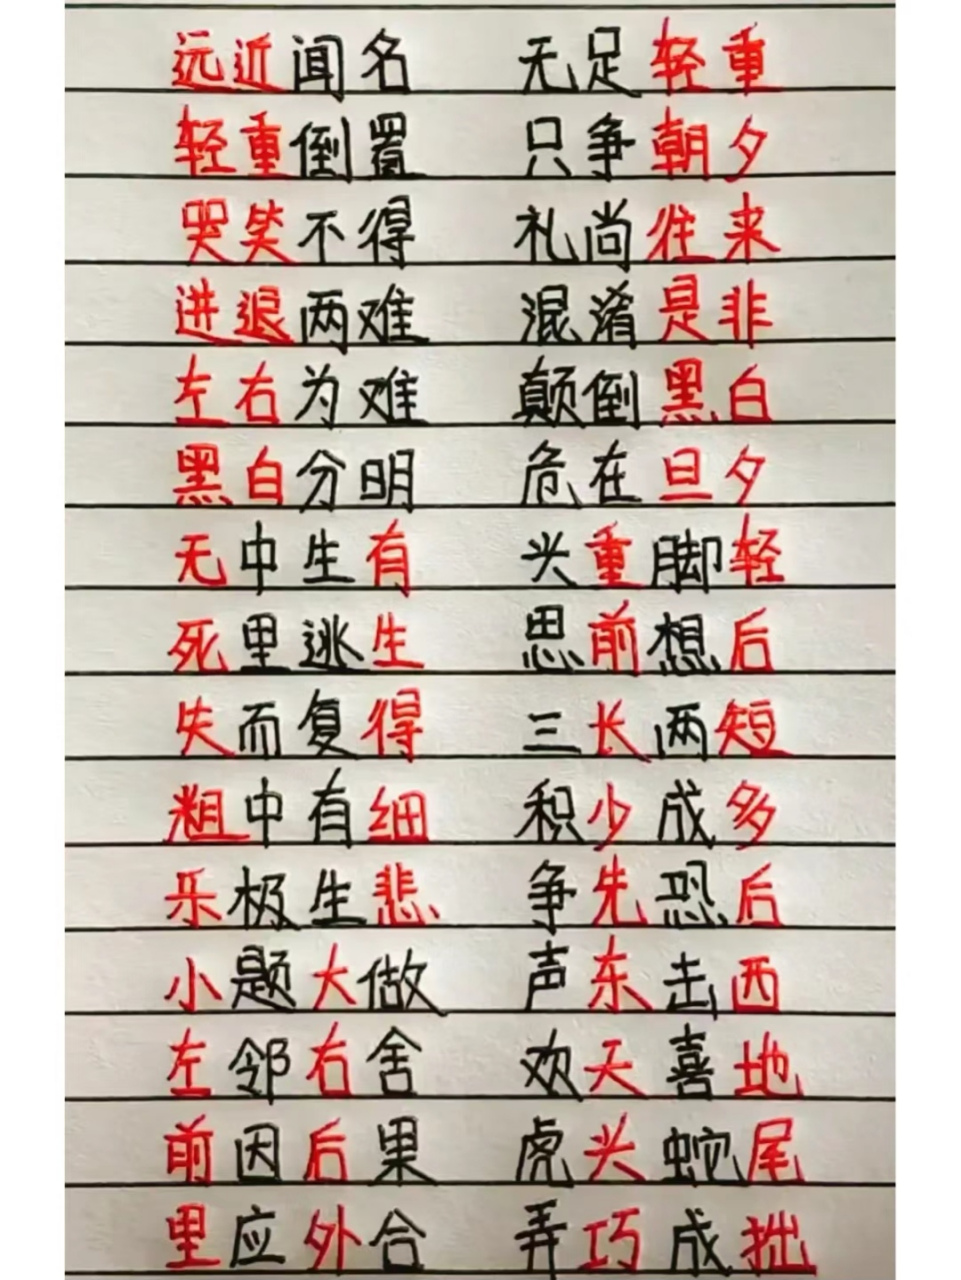 远近闻名 无足轻重
轻重倒置 只争朝夕
哭笑不得 礼尚往来
进退两难 混淆是非
左右为难 颠倒黑白
黑白分明 危在旦夕
无中生有 头重脚轻
死里逃生 思前想后
失而复得 三长两短
粗中有细 积少成多
乐极生悲 争先恐后
小题大做 声东击西
左邻右舍 欢天喜地
前因后果 虎头蛇尾
里应外合 弄巧成拙